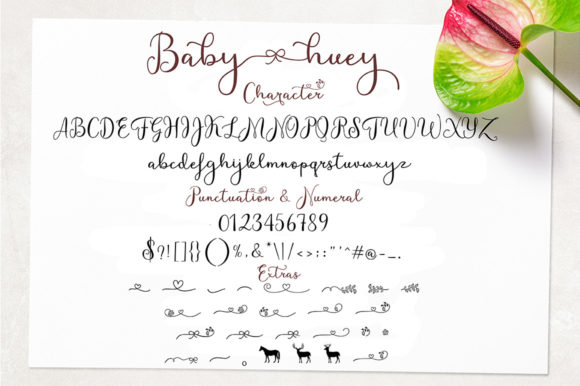 Baby huey
Character
ABCDEFGHIJKLMNOPQRSTUVWXYZ
abcdefghijklmnopqrstuvwxyz
Punctuation & Numeral
0123456789
$?![]{}()%,&*\|/<>:;"'^#@-_.
Extras